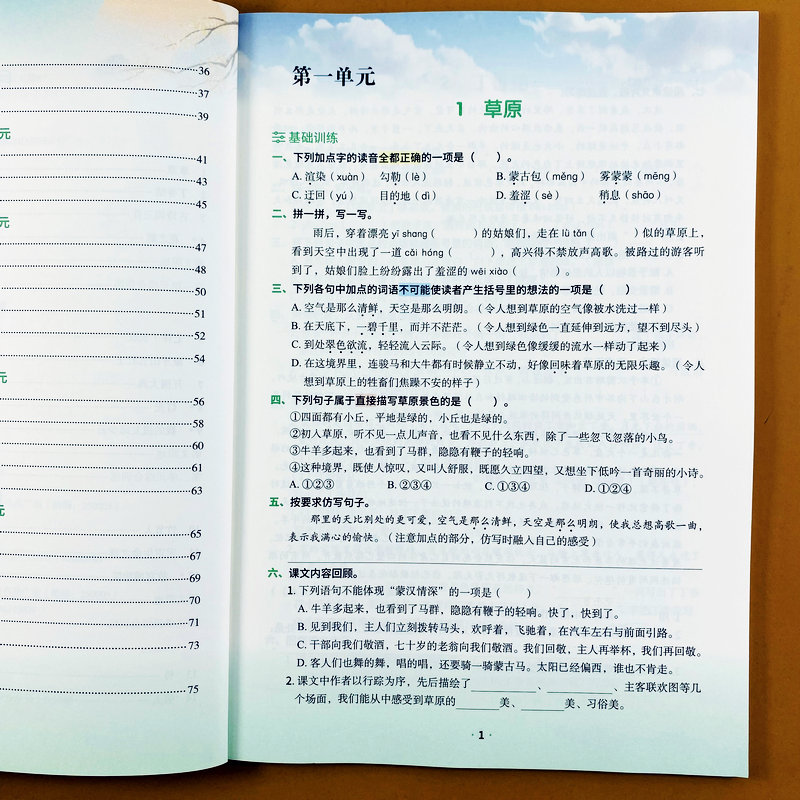 36
37
39
元
41
43
45
元
47
48
50
51
52
54
元
56
58
60
61
63
元
65
67
69
70
71
73
75
第一单元
1 草原
基础训练
一、下列加点字的读音全都正确的一项是（ ）。
A. 渲染（xuàn） 勾勒（lè） B. 蒙古包（měng） 雾蒙蒙（mēng）
C. 迂回（yú） 目的地（dì） D. 羞涩（sè） 稍息（shāo）
二、拼一拼，写一写。
雨后，穿着漂亮 yī shang（ ）的姑娘们，走在 lǜ tǎn（ ）似的草原上，
看到天空中出现了一道 cǎi hóng（ ），高兴得不禁放声高歌。被路过的游客听
到了，姑娘们脸上纷纷露出了羞涩的 wēi xiào（ ）。
三、下列各句中加点的词语不可能使读者产生括号里的想法的一项是（ ）
A. 空气是那么清鲜，天空是那么明朗。（令人想到草原的空气像被水洗过一样）
B. 在天底下，一碧千里，而并不茫茫。（令人想到绿色一直延伸到远方，望不到尽头）
C. 到处翠色欲流，轻轻流入云际。（令人想到绿色像缓缓的流水一样动了起来）
D. 在这境界里，连骏马和大牛都有时候静立不动，好像回味着草原的无限乐趣。（令人
想到草原上的牲畜们焦躁不安的样子）
四、下列句子属于直接描写草原景色的是（ ）。
①四面都有小丘，平地是绿的，小丘也是绿的。
②初入草原，听不见一点儿声音，也看不见什么东西，除了一些忽飞忽落的小鸟。
③牛羊多起来，也看到了马群，隐隐有鞭子的轻响。
④这种境界，既使人惊叹，又叫人舒服，既愿久立四望，又想坐下低吟一首奇丽的小诗。
A. ①②③ B. ②③④ C. ①③④ D. ①②④
五、按要求仿写句子。
那里的天比别处的更可爱，空气是那么清鲜，天空是那么明朗，使我总想高歌一曲，
表示我满心的愉快。（注意加点的部分，仿写时融入自己的感受）
六、课文内容回顾。
1. 下列语句不能体现“蒙汉情深”的一项是（ ）
A. 牛羊多起来，也看到了马群，隐隐有鞭子的轻响。快了，快到了。
B. 见到我们，主人们立刻拨转马头，欢呼着，飞驰着，在汽车左右与前面引路。
C. 干部向我们敬酒，七十岁的老翁向我们敬酒。我们回敬，主人再举杯，我们再回敬。
D. 客人们也舞的舞，唱的唱，还要骑一骑蒙古马。太阳已经偏西，谁也不肯走。
2. 课文中作者以行踪为序，先后描绘了____________、____________、主客联欢图等几
个场面，我们能从中感受到草原的________美、________美、习俗美。
· 1 ·